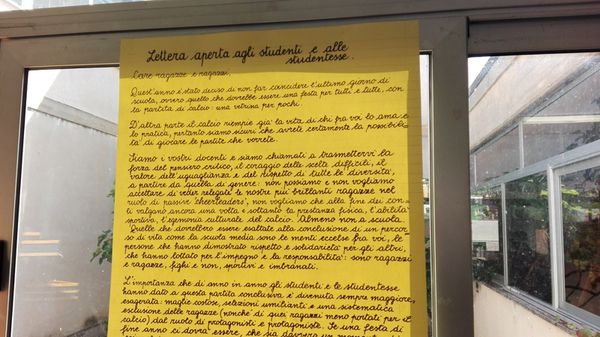 Lettera aperta agli studenti e alle
studentesse.
Care ragazze e ragazzi,
Quest'anno è stato deciso di non far coincidere l'ultimo giorno di
scuola, ovvero quello che dovrebbe essere una festa per tutti e tutte, con
la partita di calcio: una vetrina per pochi.
D'altra parte il calcio riempie già la vita di chi fra voi lo ama e
lo pratica, pertanto siamo sicuri che avrete certamente la possibili-
tà di giocare le partite che vorrete.
Siamo i vostri docenti e siamo chiamati a trasmettervi la
forza del pensiero critico, il coraggio delle scelte difficili, il
valore dell'uguaglianza e del rispetto di tutte le diversità,
a partire da quella di genere: non possiamo e non vogliamo
accettare di veder relegate le nostre più brillanti ragazze nel
ruolo di passive cheerleaders, non vogliamo che alla fine dei con-
ti valgano ancora una volta e soltanto la prestanza fisica, l'abilità
sportiva, l'egemonia culturale del calcio. Almeno non a scuola.
Quelle che dovrebbero essere esaltate alla conclusione di un percor-
so di vita come la scuola media sono le menti eccelse fra voi, le
persone che hanno dimostrato rispetto e solidarietà per gli altri,
che hanno lottato per l'impegno e la responsabilità: sono ragazzi
e ragazze, fighi e non, sportivi e imbranati.
L'importanza che di anno in anno gli studenti e le studentesse
hanno dato a questa partita conclusiva è divenuta sempre maggiore,
esagerata: maglie costose, selezioni umilianti e una sistematica
esclusione delle ragazze (nonché di quei ragazzi meno portati per il
calcio) dal ruolo di protagonisti e protagoniste. Se una festa di
fine anno ci dovrà essere, che sia davvero un momento